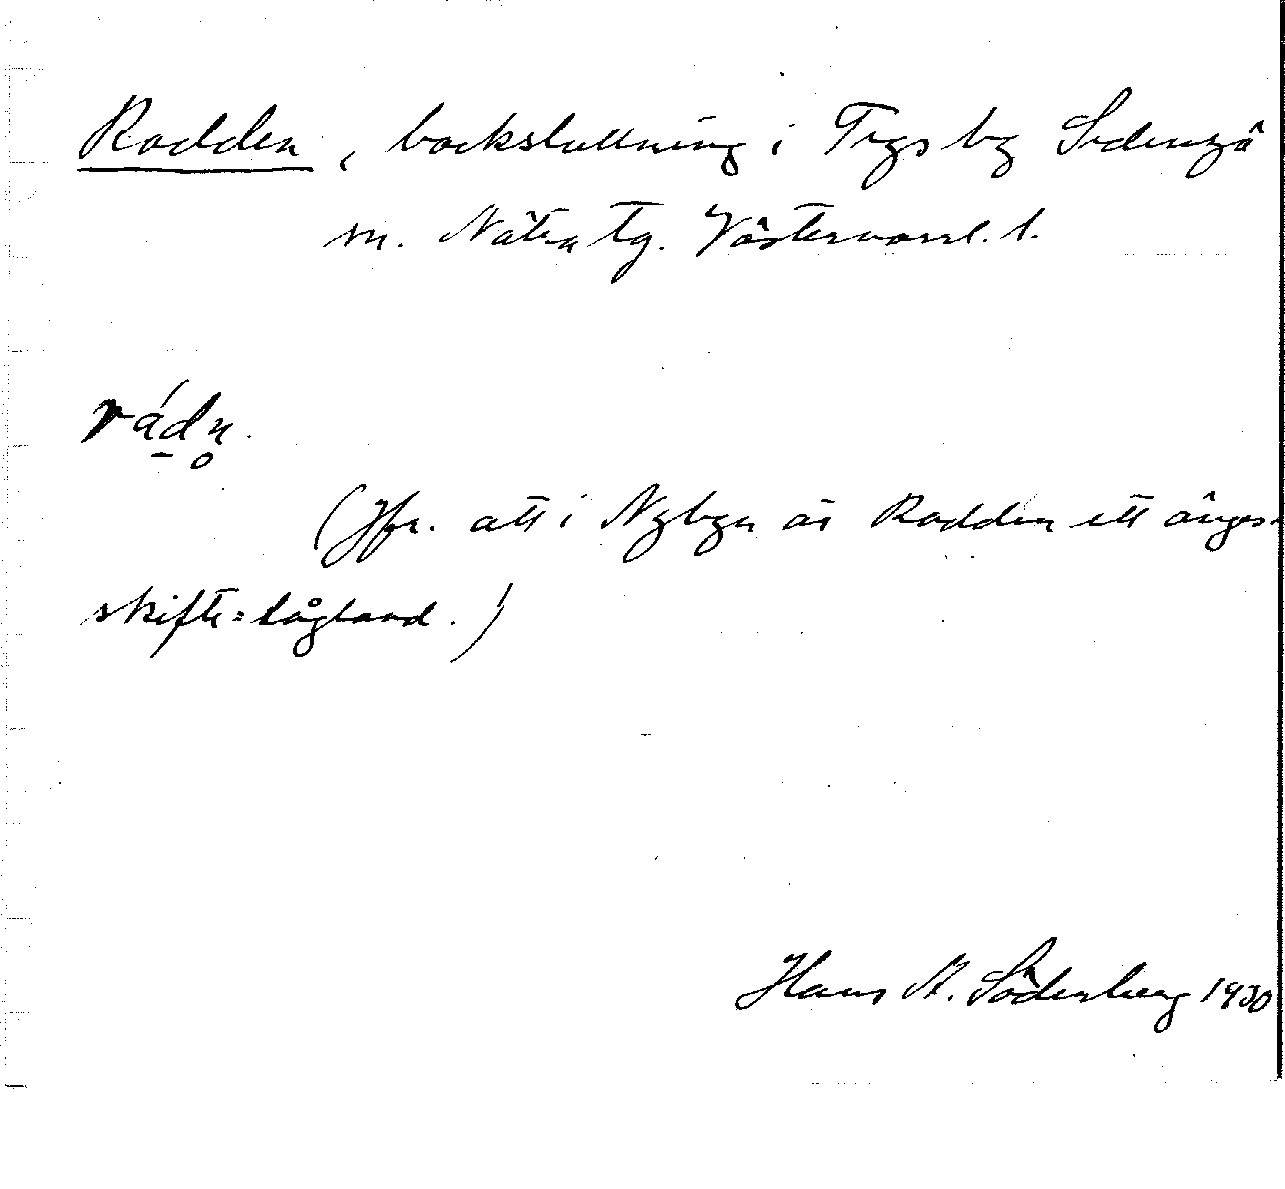 Radden, backsluttning i Trysby Sidensjö
sn. Nätra tg. Västernorrl. l.
rádn.
(Jfr. att i Nybyn är Radden ett änges-
skifte: lågland.)
Hans A. Söderberg 1930